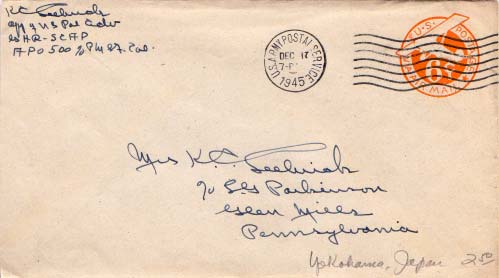 K.C. Seelnick
Off of US Pol Adv
GHQ-SCAP
APO 500 % PM S.F. Cal.
U.S. ARMY POSTAL SERVICE
DEC 17
7-P
1945
U.S. POSTAGE
6¢
VIA AIR MAIL
Mrs K.C. Seelnick
% S.G. Parkinson
Glen Mills
Pennsylvania
Yokohama, Japan 2.50